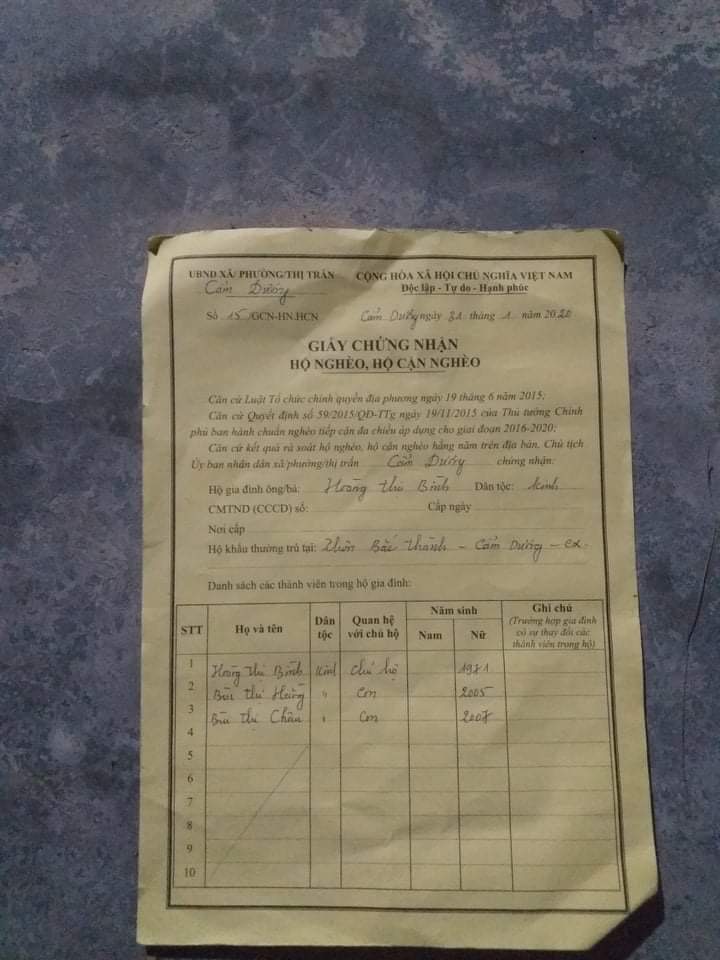 UBND XÃ/ PHƯỜNG/THỊ TRẤN
Cẩm Dương
Số 15/GCN-HN.HCN
CỘNG HÒA XÃ HỘI CHỦ NGHĨA VIỆT NAM
Độc lập - Tự do - Hạnh phúc
Cẩm Dương ngày 31 tháng 1 năm 2020
GIẤY CHỨNG NHẬN
HỘ NGHÈO, HỘ CẬN NGHÈO
Căn cứ Luật Tổ chức chính quyền địa phương ngày 19 tháng 6 năm 2015;
Căn cứ Quyết định số 59/2015/QĐ-TTg ngày 19/11/2015 của Thủ tướng Chính
phủ ban hành chuẩn nghèo tiếp cận đa chiều áp dụng cho giai đoạn 2016-2020;
Căn cứ kết quả rà soát hộ nghèo, hộ cận nghèo hằng năm trên địa bàn. Chủ tịch
Ủy ban nhân dân xã/phường/thị trấn Cẩm Dương chứng nhận:
Hộ gia đình ông/bà: Hoàng Thị Bình Dân tộc: Kinh
CMTND (CCCD) số: Cấp ngày
Nơi cấp
Hộ khẩu thường trú tại: Thôn Bắc Thành - Cẩm Dương - CX.
Danh sách các thành viên trong hộ gia đình:
STT Họ và tên Dân tộc Quan hệ với chủ hộ Năm sinh Nam Nữ Ghi chú
(Trường hợp gia đình
có sự thay đổi các
thành viên trong hộ)
1 Hoàng Thị Bình Kinh Chủ hộ 1981
2 Bùi Thị Hằng " Con 2005
3 Bùi Thị Châu " Con 2007
4
5
6
7
8
9
10